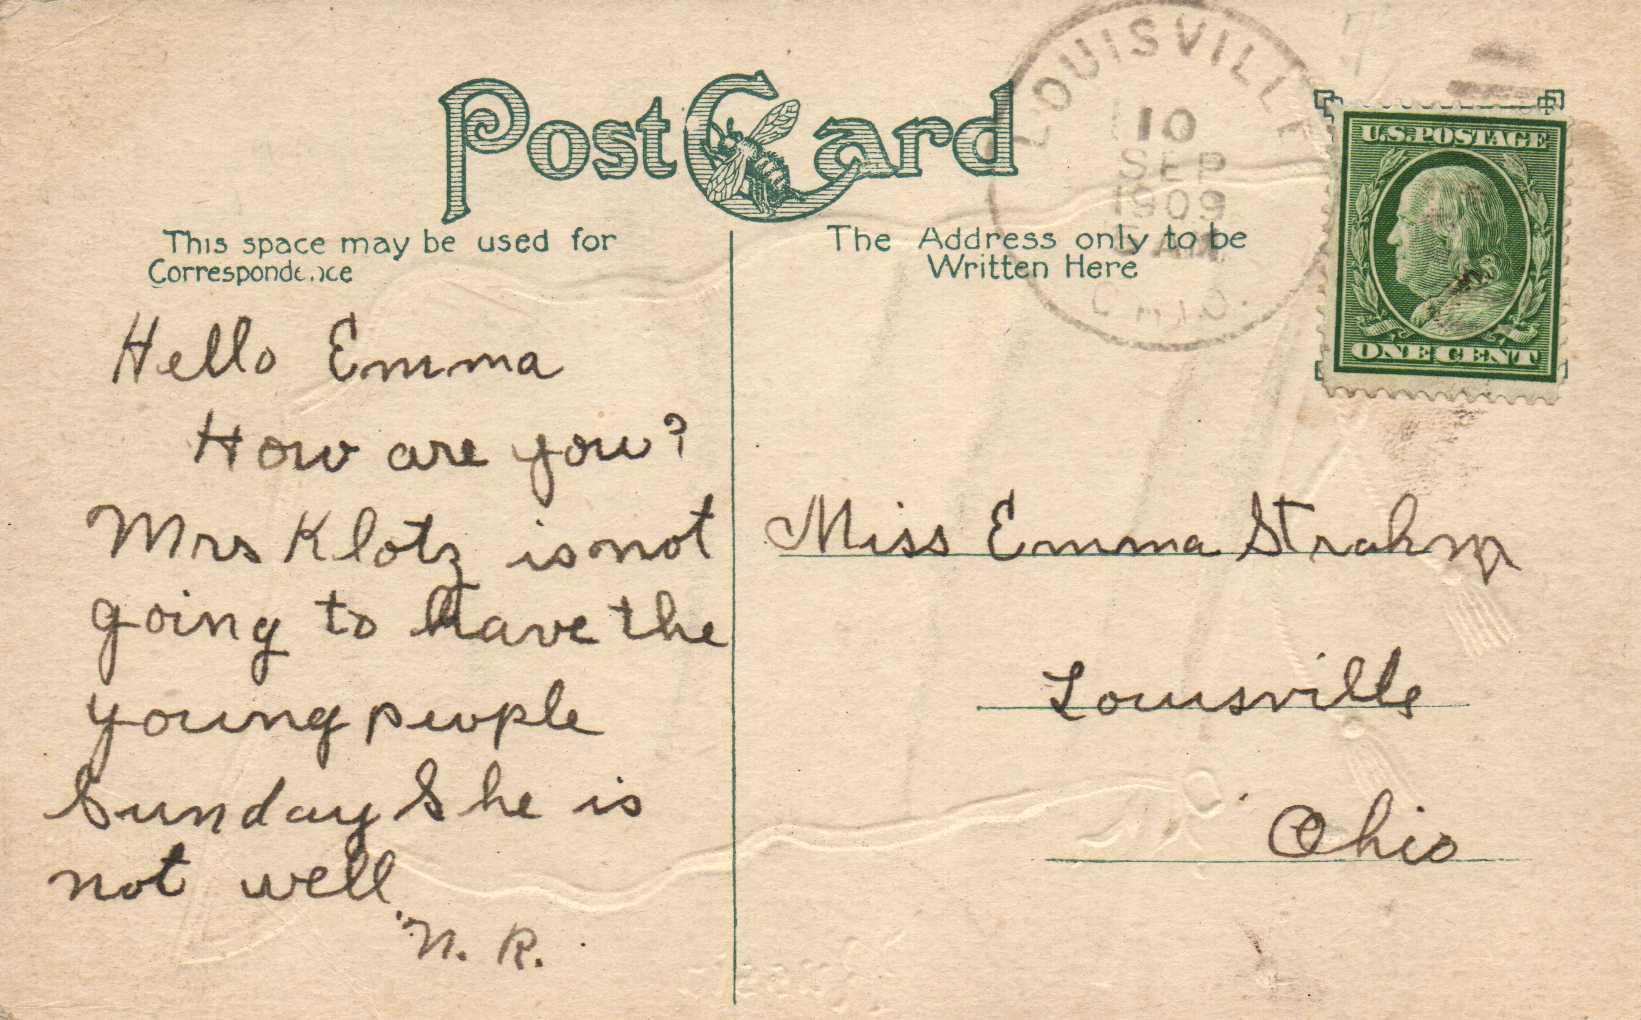 Post Card
This space may be used for
Correspondence
The Address only to be
Written Here
LOUISVILLE
10
SEP
1909
OHIO.
U.S. POSTAGE
ONE CENT
Hello Emma
How are you?
Mrs Klotz is not
going to have the
young people
Sunday She is
not well
N. R.
Miss Emma Strahm
Louisville
Ohio